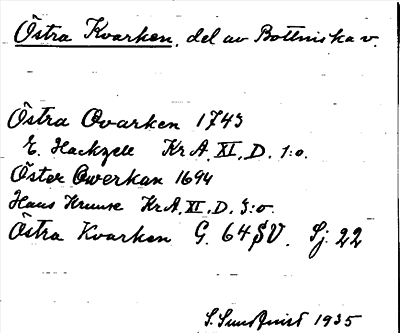 Östra Kvarken, del av Bottniska v.
Östra Qvarken 1743
E. Hackzell Kr A. XI. D. 1:o.
Öster Qwerkan 1694
Hans Kruuse Kr A. XI. D. 3:o
Östra Kvarken G. 64 SV. Sj. 22
S. Sundqvist 1935